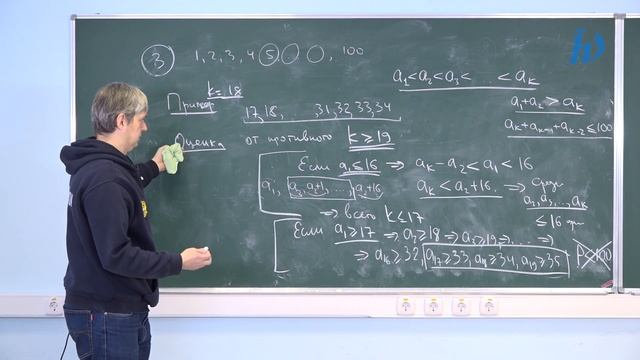 3 1, 2, 3, 4, 5, 100
a₁<a₂<a₃< ... <aₖ
k=18
Пример 17, 18, , 31, 32, 33, 34
a₁+a₂ > aₖ
aₖ+aₖ₋₁+aₖ₋₂≤100
Оценка от противного k≥19
Если a₁≤16 ⇒ aₖ-a₂<a₁<16
a₁, a₂, a₂+1, ... a₂+16 aₖ<a₂+16. ⇒ Среди
a₂, a₃, ..., aₖ
⇒ всего k≤17 ≤16
Если a₁≥17 ⇒ a₂≥18 ⇒ a₃≥19 ⇒ ... ⇒
⇒ a₁₆≥32, a₁₇≥33, a₁₈≥34, a₁₉≥35